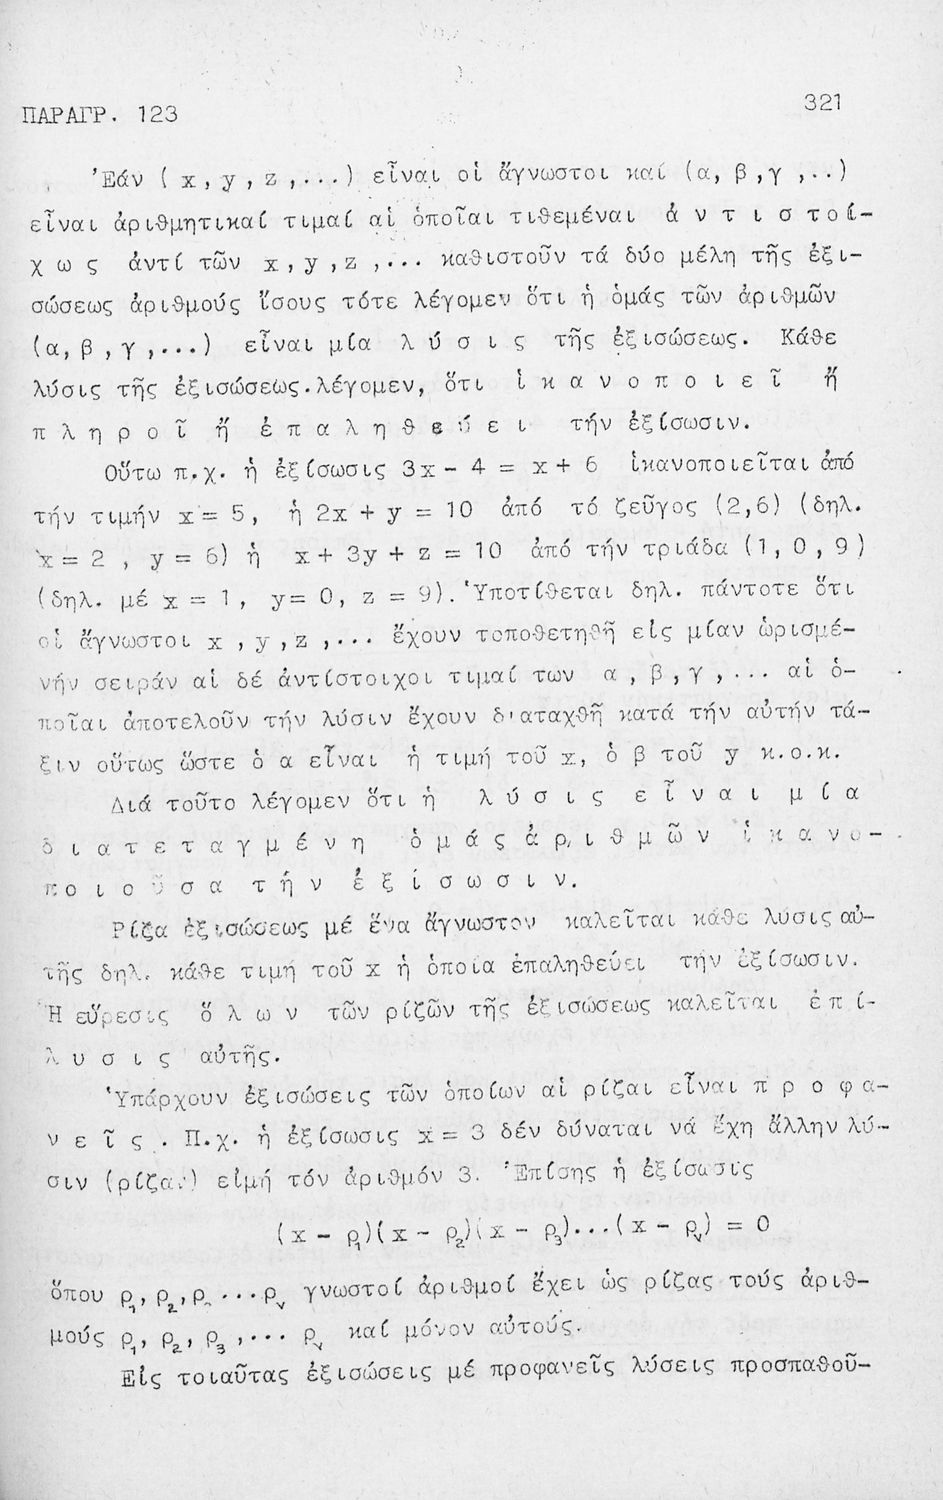 ΠΑΡΑΓΡ. 123
321
Ἐάν (x, y, z, ...) εἶναι οἱ ἄγνωστοι καί (α, β, γ, ..)
εἶναι ἀριθμητικαί τιμαί αἱ ὁποῖαι τιθεμέναι ἀ ν τ ι σ τ ο ί-
χ ω ς ἀντί τῶν x, y, z, ... καθιστοῦν τά δύο μέλη τῆς ἐξι-
σώσεως ἀριθμούς ἴσους τότε λέγομεν ὅτι ἡ ὁμάς τῶν ἀριθμῶν
(α, β, γ, ...) εἶναι μία λ ύ σ ι ς τῆς ἐξισώσεως. Κάθε
λύσις τῆς ἐξισώσεως.λέγομεν, ὅτι ἱ κ α ν ο π ο ι ε ῖ ἤ
π λ η ρ ο ῖ ἤ ἐ π α λ η θ ε ύ ε ι τήν ἐξίσωσιν.
Οὕτω π.χ. ἡ ἐξίσωσις 3x - 4 = x + 6 ἱκανοποιεῖται ἀπό
τήν τιμήν x = 5, ἡ 2x + y = 10 ἀπό τό ζεῦγος (2,6) (δηλ.
x = 2 , y = 6) ἡ x + 3y + z = 10 ἀπό τήν τριάδα (1, 0, 9)
(δηλ. μέ x = 1, y= 0, z = 9). Ὑποτίθεται δηλ. πάντοτε ὅτι
οἱ ἄγνωστοι x, y, z, ... ἔχουν τοποθετηθῆ εἰς μίαν ὡρισμέ-
νήν σειράν αἱ δέ ἀντίστοιχοι τιμαί των α, β, γ, ... αἱ ὁ-
ποῖαι ἀποτελοῦν τήν λύσιν ἔχουν διαταχθῆ κατά τήν αὐτήν τά-
ξιν οὕτως ὥστε ὁ α εἶναι ἡ τιμή τοῦ x, ὁ β τοῦ y κ.ο.κ.
Διά τοῦτο λέγομεν ὅτι ἡ λ ύ σ ι ς ε ἶ ν α ι μ ί α
δ ι α τ ε τ α γ μ έ ν η ὁ μ ά ς ἀ ρ ι θ μ ῶ ν ἱ κ α ν ο -
π ο ι ο ῦ σ α τ ή ν ἐ ξ ί σ ω σ ι ν.
Ρίζα ἐξισώσεως μέ ἕνα ἄγνωστον καλεῖται κάθε λύσις αὐ-
τῆς δηλ. κάθε τιμή τοῦ x ἡ ὁποία ἐπαληθεύει τήν ἐξίσωσιν.
Ἡ εὕρεσις ὅ λ ω ν τῶν ρίζῶν τῆς ἐξισώσεως καλεῖται ἐ π ί-
λ υ σ ι ς αὐτῆς.
Ὑπάρχουν ἐξισώσεις τῶν ὁποίων αἱ ρίζαι εἶναι π ρ ο φ α-
ν ε ῖ ς . Π.χ. ἡ ἐξίσωσις x = 3 δέν δύναται νά ἔχη ἄλλην λύ-
σιν (ρίζαν) εἰμή τόν ἀριθμόν 3. Ἐπίσης ἡ ἐξίσωσις
(x - ρ₁)(x - ρ₂)(x - ρ₃)...(x - ρᵥ) = 0
ὅπου ρ₁, ρ₂, ρ ... ρᵥ γνωστοί ἀριθμοί ἔχει ὡς ρίζας τούς ἀριθ-
μούς ρ₁, ρ₂, ρ₃, ... ρᵥ καί μόνον αὐτούς.
Εἰς τοιαῦτας ἐξισώσεις μέ προφανεῖς λύσεις προσπαθοῦ-